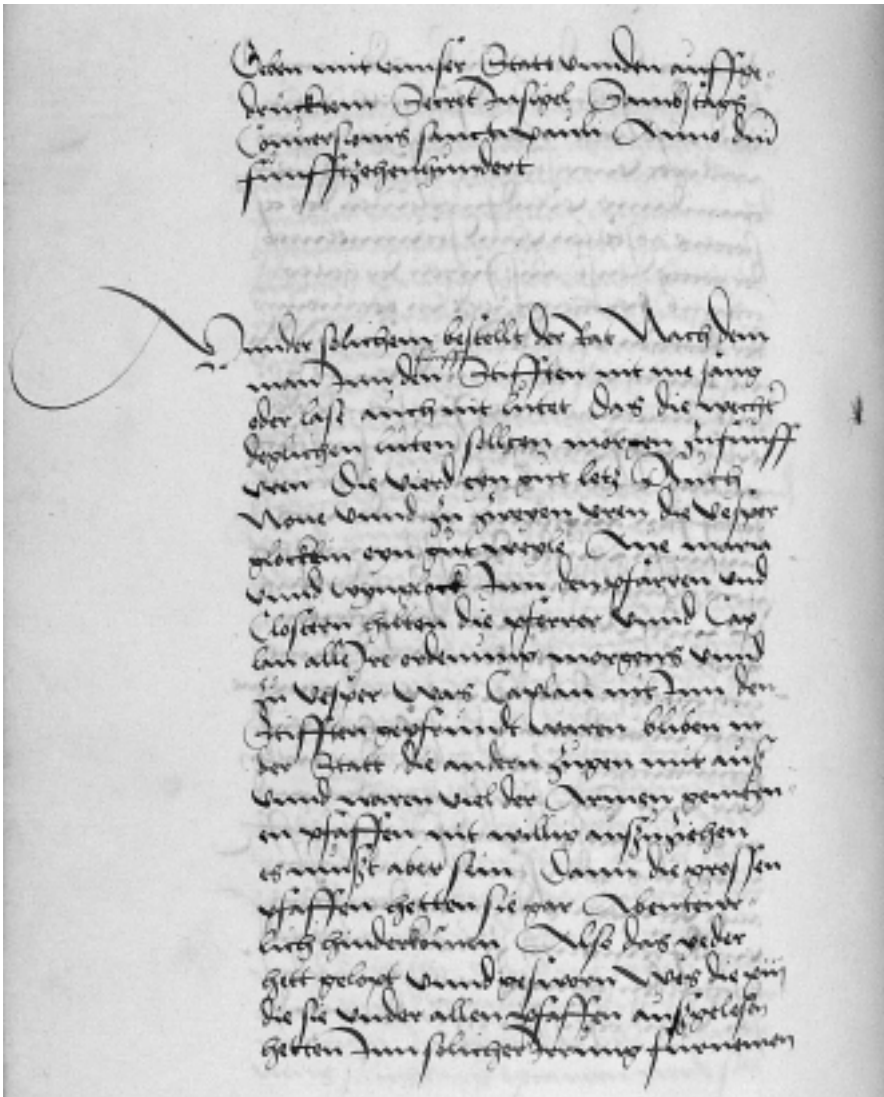 Geben mit vnnser Statt vnnden auffge-
drucktem Secret Insigel Sambstags
Conuersionis sancti pauli Anno dni
funfftzehenhundert
Vnnder solichem bestellt der Rat Nach dem
man Inn den funff Stifften nit me sang
oder lase auch nit lutet das die wecht
deglichen luten sollten morgen zufunff
vren Die vierd eyn gut letz Auch
None vnnd zu zweyen vren die vesper
glocken eyn gut weyle Aue maria
vnnd Inn den pfarren vnd
Clostern hilten die pferrer vnnd Cap
lan alle Ire ordenung morgens vnnd
zu vesper Was Caplan nit Inn den
Stifften gepfrundt waren bliben in
der Statt die andern zugen mit auß
vnnd waren viel der Armen gemeyn
en pfaffen nit willig außzuziehen
es mußt aber sein Dann die grossen
pfaffen hetten sie gar Abenteur-
lich hinderkomen Also das yeder
hett gelopt vnnd gesworn Wes die xiij
die sie vnder allen pfaffen außgelesen
hetten Inn solicher Irrung furnemen